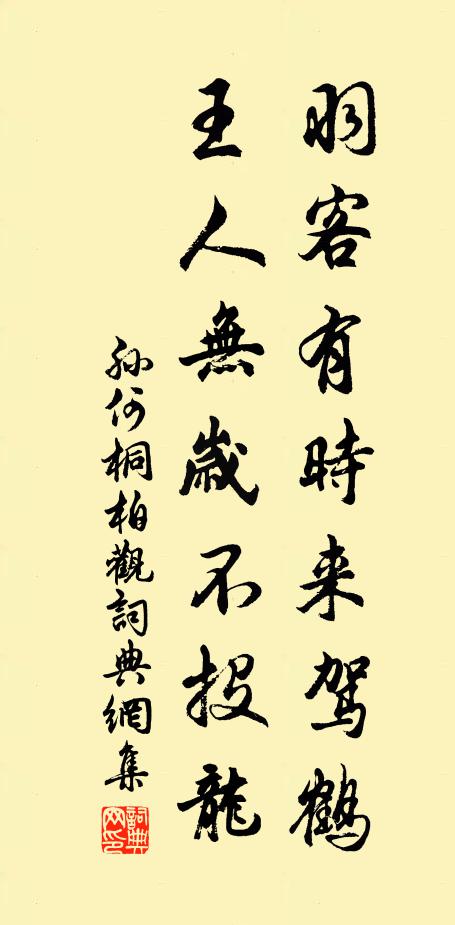 羽客有時来駕鶴
王人無歲不投龍
孙何桐柏觀詞典網集
詞典
网印